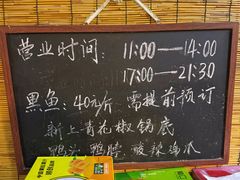 营业时间: 11:00—14:00
17:00—21:30
黑鱼: 40元/斤 需提前预订
新上青花椒锅底
鸭头 鸭脖 酸辣鸡爪